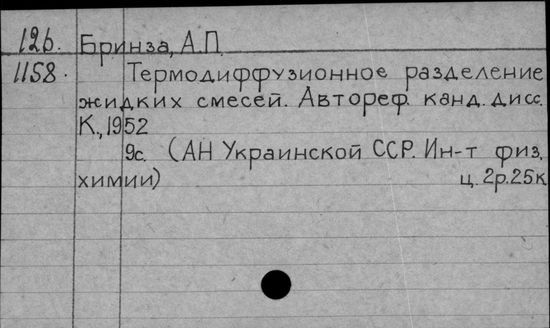 12б. Бринза, А.П.
1158. Термодиффузионное разделение
жидких смесей. Автореф. канд. дисс.
К., 1952
9с. (АН Украинской ССР. Ин-т физ.
химии) ц. 2р.25к